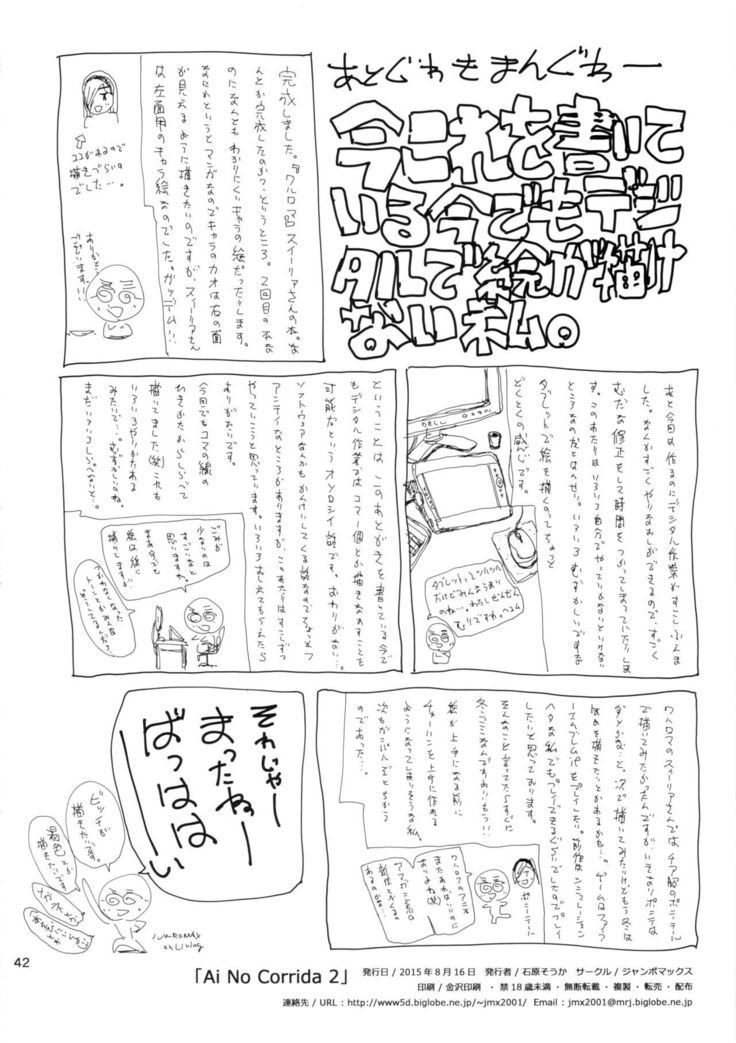 あとじゃきまんぐゎー
今これを書いて
いる今でもデジ
タルで絵が描け
ない私。
完成しました。ワルロマのスイーリアさんの本。な
んとか完成したのかな？というところ。2回目の本な
のになんともわかりにくいキャラの絵だったりします。
なにかというとマンガなのでキャラのカオは右の面
が見えるように描きたいのですがスイーリアさん
は左面用のキャラ絵なのでした。ガッデーム！！
ココがあるので
描きづらいの
でした…。
ありがとう
ございます！！
あと今回は作るのにデジタル作業がすこしふえま
した。なんかすごくやりなおしができるので、すっごく
むだな修正をして時間をつかってしまっていたりしま
す。このあたりはいろいろ自分でやっていかないといけない
ところなのだとは
いろいろむずかしいですな
タブレットで絵を描くのってちょっと
どくとくの感じです。
DELL
タブレットってツルツル
だけどみんなうまい
のね…。わたしぜんぜん
むりですわ。
ということはこのあとがきを書いている今で
もデジタル作業ではコマ1個とか描きなおすことも
可能だというオソロシイ話です。おわりがない…。
ソフトウェアなんかもかんけいしてくる話なのでちょっとフ
アンテイなところがありますが、このあたりはすこしずつ
やっていこうと思っています。いろいろおしえてもらえたら
ありがたいです。
今回でもコマの線の
ひきかたからしらべて
描いてました(笑)これも
いろいろやりかたある
みたいで…。むずかしいのね。
ゴミが
少ないのは
すごいなと
思いますね。
まあ今でも
絵は紙に
描いてますが
ワルロマのスイーリアさんでは、チア服のポニーテール
で描いてみたかったんですが、いきなりポニテは
ダメかなーと。次で描いてみたいけどもう冬は
ヘタな私でもプレイできるぐらいでしたのでプレイ
したいと思っております。
そんなこと言ってたらすぐに
冬コミなんですよね、もう！！
絵が上手になる前に
チャーハンを上手に作れる
ようになってしまいそうな私。
のであった…。
ポニーテール
ワルロマのアニメ
まだあれないのに
おわりよね(笑)
それじゃー
まったねー
ばっはは
ーい
ビッチが
描きたいです。
褐色とか
描きたいです
JUMBOMAX
oh Living
42
「Ai No Corrida 2」 発行日 / 2015年8月16日 発行者 / 石原そうか サークル / ジャンボマックス
印刷 / 金沢印刷 ・禁18歳未満 ・無断転載・複製・転売・配布
連絡先 / URL : http://www5d.biglobe.ne.jp/~jmx2001/ Email : jmx2001@mrj.biglobe.ne.jp